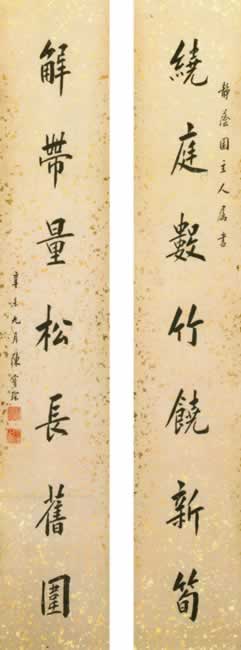 靜園主人屬書
繞庭數竹饒新筍
解帶量松長舊圍
辛未九月陳寶琛